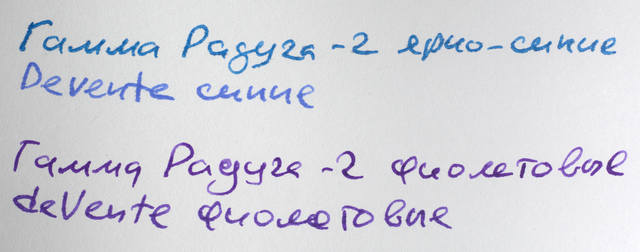 Гамма Радуга-2 ярко-синие
Devente синие
Гамма Радуга-2 фиолетовые
deVente фиолетовые